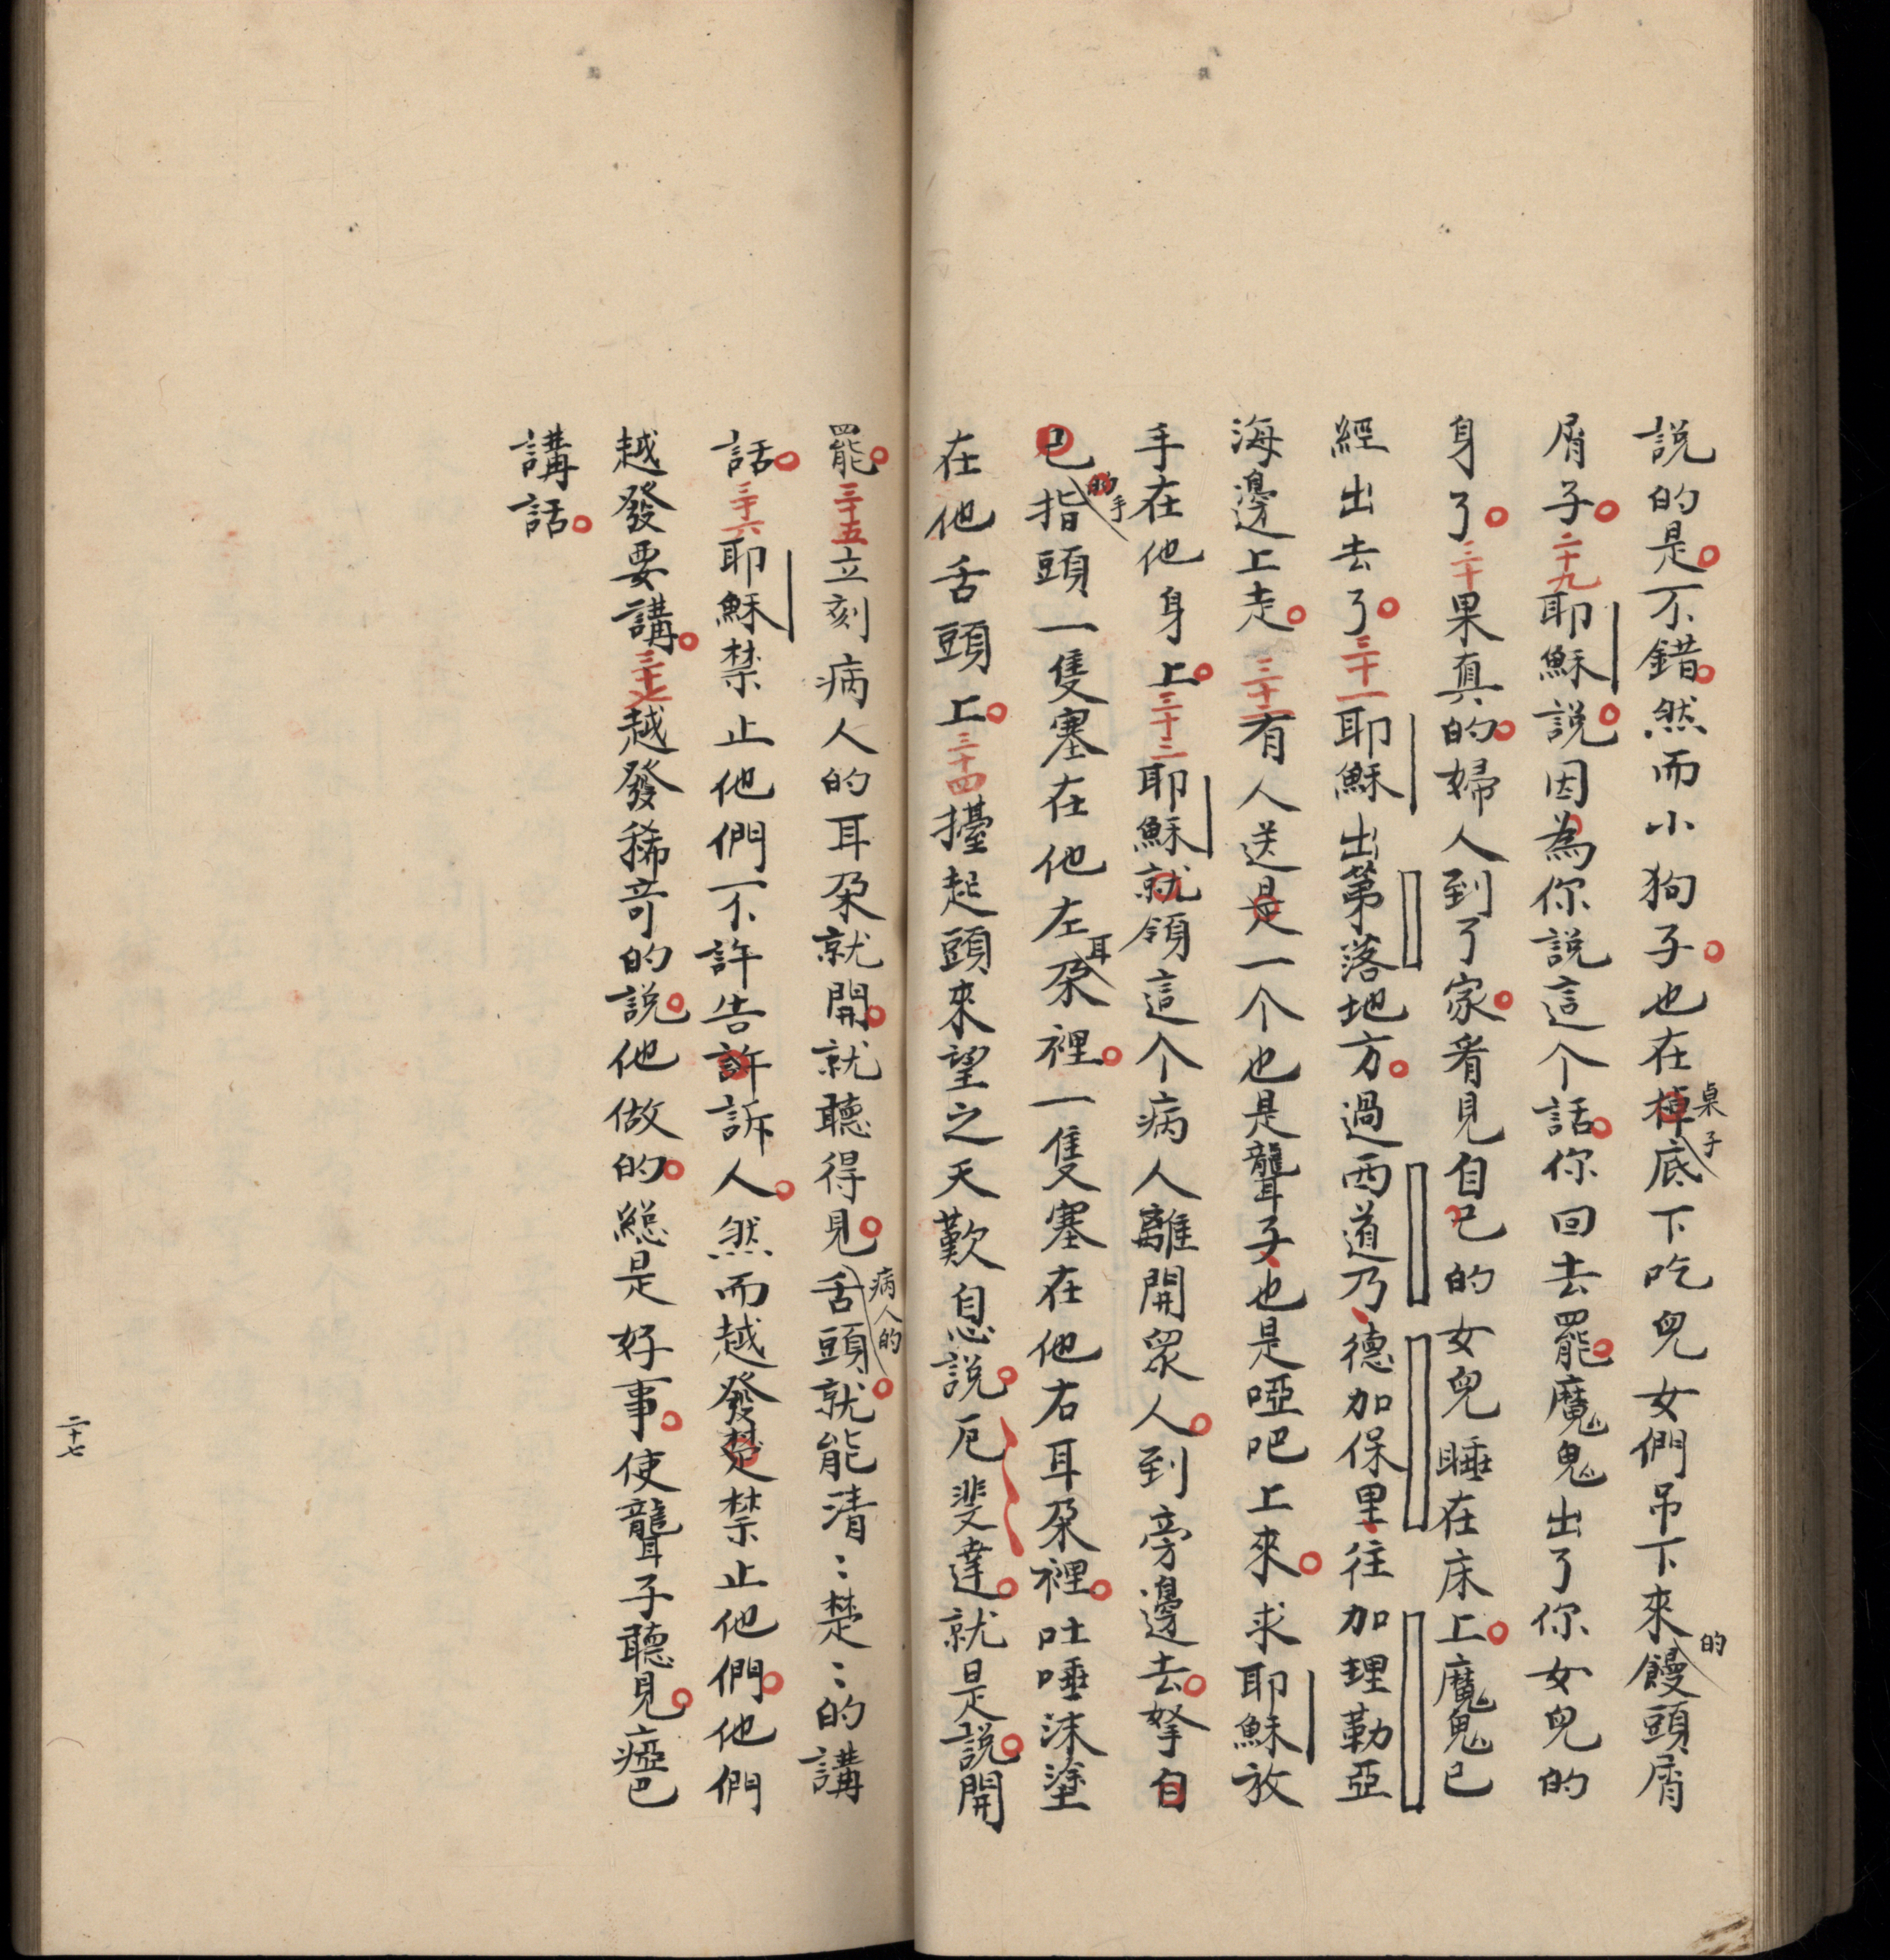 說的是不錯然而小狗子也在棹桌子底下吃兒女們吊下來的饅頭屑
屑子二十九耶穌說因為你說這个話你回去罷魔鬼出了你女兒的
身了三十果真的婦人到了家看見自己的女兒睡在床上魔鬼已
經出去了三十一耶穌出第落地方過西道乃德加保里往加理勒亞
海邊上走三十二有人送是一个也是聾子也是啞吧上來求耶穌放
手在他身上三十三耶穌就領這个病人離開眾人到旁邊去拏自
己的手指頭一隻塞在他左耳朶裡一隻塞在他右耳朶裡吐唾沫塗
在他舌頭上三十四擡起頭來望之天歎息說厄斐達就是說開
罷三十五立刻病人的耳朶就開就聽得見病人的舌頭就能清〻楚〻的講
話三十六耶穌禁止他們不許告許訴人然而越發楚禁止他們他們
越發要講三十七越發稀奇的說他做的總是好事使聾子聽見瘂巴
講話
二十七